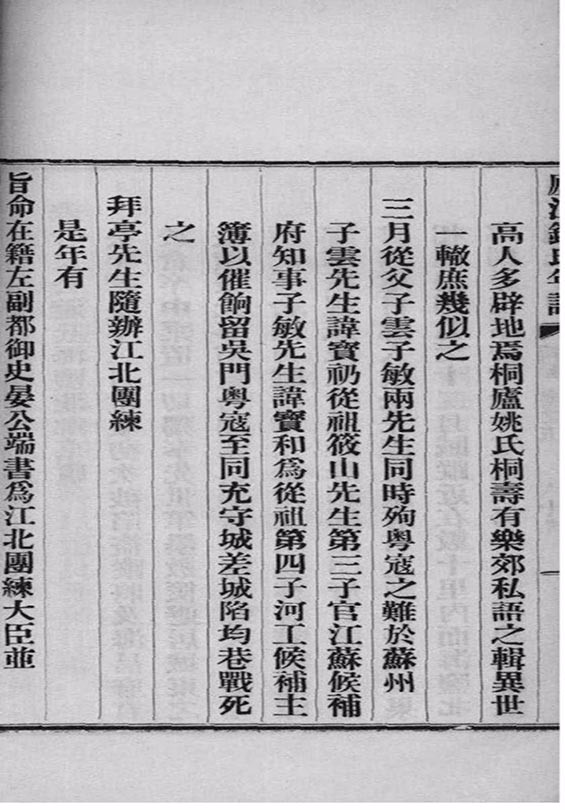 高人多辟地焉桐廬姚氏桐壽有樂郊私語之輯異世
一轍庶幾似之
三月從父子雲子敏兩先生同時殉粵寇之難於蘇州
子雲先生諱寶礽從祖筱山先生第三子官江蘇候補
府知事子敏先生諱寶和爲從祖第四子河工候補主
簿以催餉留吳門粵寇至同充守城差城陷均巷戰死
之
拜亭先生隨辦江北團練
是年有
旨命在籍左副都御史晏公端書爲江北團練大臣並